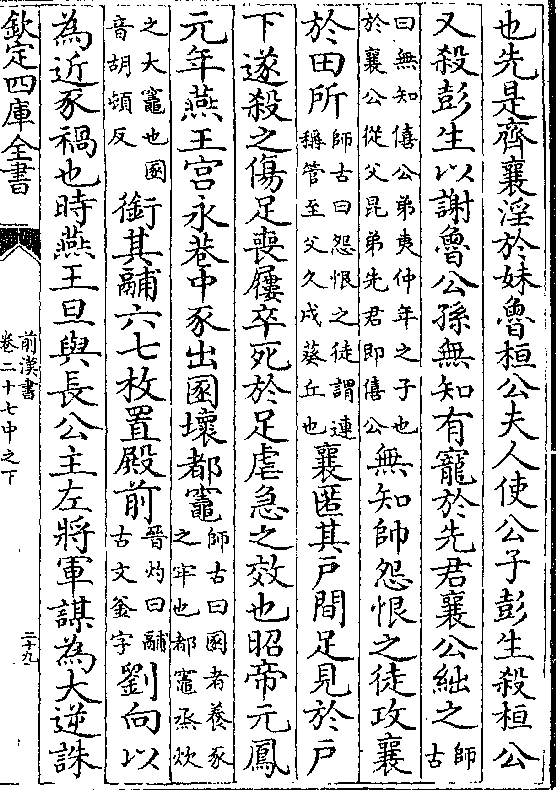 也先是齊襄淫於妹魯桓公夫人使公子彭生殺桓公
又殺彭生以謝魯公孫無知有寵於先君襄公絀之師古
曰無知僖公弟夷仲年之子也
於襄公從父昆弟先君即僖公無知帥怨恨之徒攻襄
於田所師古曰怨恨之徒謂連
稱管至父久戍葵丘也襄匿其戶間足見於戶
下遂殺之傷足喪屨卒死於足虐急之效也昭帝元鳳
元年燕王宮永巷中豕出圂壞都竈師古曰圂者養豕
之牢也都竈烝炊
之大竈也圂
音胡頓反銜其鬴六七枚置殿前晉灼曰鬴
古文釜字劉向以
為近豕禍也時燕王旦與長公主左將軍謀為大逆誅
欽定四庫全書
前漢書
卷二十七中之下
二十九